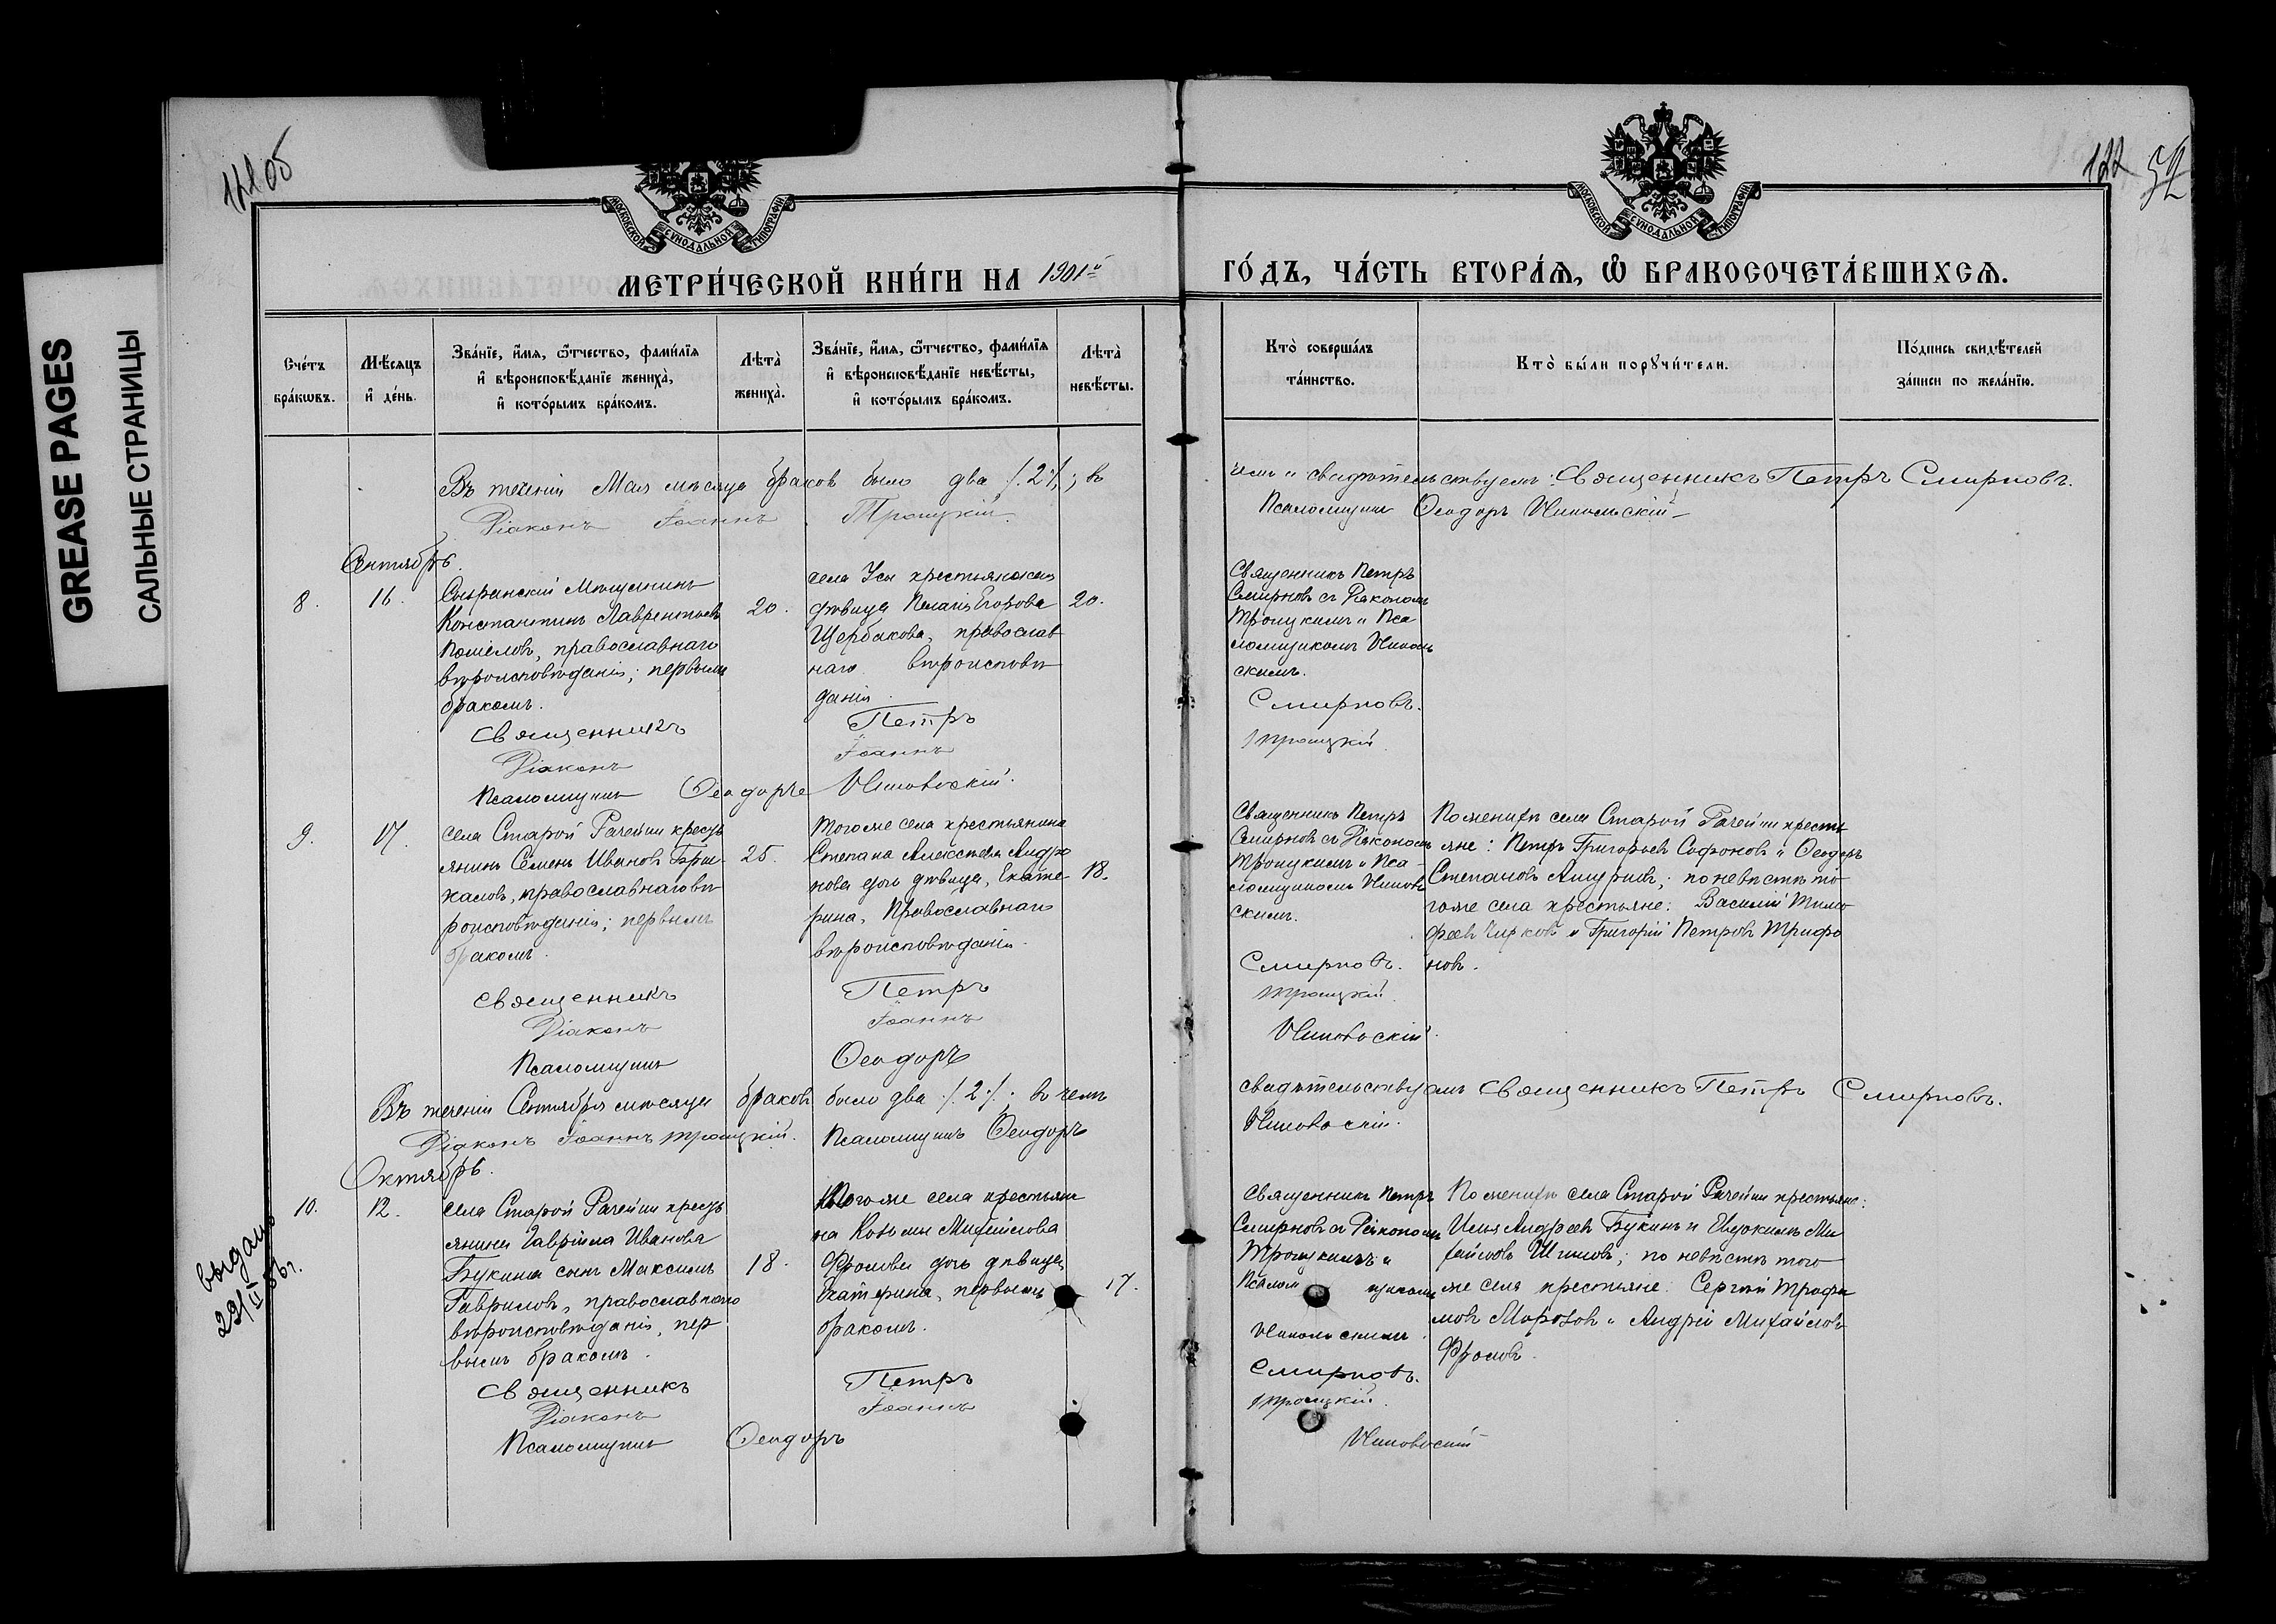 GREASE PAGES
САЛЬНЫЕ СТРАНИЦЫ
122 об
122 52
МОСКОВСКОЙ СѴНОДАЛЬНОЙ ТИПОГРАФІИ
МОСКОВСКОЙ СѴНОДАЛЬНОЙ ТИПОГРАФІИ
МЕТРИ́ЧЕСКОЙ КНИ́ГИ НА 1901й
ГО́ДЪ, ЧА́СТЬ ВТОРА́Я, Ѽ БРАКОСОЧЕТА́ВШИХСЯ.
Сче́тъ бра́кѡвъ.
Мѣ́сяцъ и҆ де́нь.
Зва́нїе, и҆́мя, ѻ҆́тчество, фами́лїя
и҆ вѣроисповѣ́данїе жениха̀,
и҆ кото́рымъ бра́комъ.
Лѣта̀ жениха̀.
Зва́нїе, и҆́мя, ѻ҆́тчество, фами́лїя
и҆ вѣроисповѣ́данїе невѣ́сты,
и҆ кото́рымъ бра́комъ.
Лѣта̀ невѣ́сты.
Кто̀ соверша́лъ та́инство.
Кто̀ бы́ли порꙋчи́тели.
По́дпись свидѣ́телей
за́писи по жела́нїю.
Въ теченіи Мая мѣсяца браков было два /.2./.; в
чем и свидѣтельствуемъ: Священникъ Петръ Смирновъ.
Діаконъ Іоаннъ Троицкій.
Псаломщикъ Ѳеодоръ Никольскій
Сентябрь.
8.
16.
Сызранскій Мѣщанинъ
Константинъ Лаврентьевъ
православнаго
вѣроисповѣданія; первымъ
бракомъ.
20.
села Усы крестьянская
дѣвица Пелагія Егорова
Щербакова, православ
наго вѣроисповѣ
данія.
20.
Священникъ Петръ
Смирновъ съ Діакономъ
Троицкимъ и Пса
ломщикомъ Николь
скимъ.
Священникъ Петръ Смирновъ.
Діаконъ Іоаннъ Троицкій.
Псаломщикъ Ѳеодоръ Никольскій.
9.
17.
села Старой Рачейки кресть
янинъ Семенъ Иванов
православнаго вѣ
роисповѣданія; первымъ
бракомъ.
25.
Того же села крестьянина
Степана Алексѣева Андро
нова дочь дѣвица, Екате-
рина, Православнаго
вѣроисповѣданія.
18.
Священникъ Петръ
Смирновъ съ Діакономъ
Троицкимъ и Пса-
ломщикомъ Николь
скимъ.
По женихѣ села Старой Рачейки кресть
яне: Петръ Григорьев Софонов и Ѳеодоръ
Степановъ по невѣстѣ то
го же села крестьяне: Василій Тимо
фѣевъ Чирков и Григорій Петров Трифо
нов.
Священникъ Петръ Смирновъ.
Діаконъ Іоаннъ Троицкій.
Псаломщикъ Ѳеодоръ Никольскій.
Въ теченіи Сентября мѣсяца браков было два /.2./.; в чемъ
свидѣтельствуемъ Священникъ Петръ Смирновъ.
Діаконъ Іоаннъ Троицкій. Псаломщикъ Ѳеодоръ
Никольскій.
Октябрь.
10.
12.
выдано
23/II 56 г.
села Старой Рачейки кресть
янина Гавріила Иванова
Букина сынъ Максимъ
Гаврилов, православнаго
вѣроисповѣданія, пер
вымъ бракомъ.
18.
Того же села крестьяни
на Козьмы Михайлова
Фролова дочь дѣвица
Екатерина, первымъ
бракомъ.
17.
Священникъ Петръ
Смирновъ съ Діакономъ
Троицкимъ и
Псалом щикомъ
Никольскимъ.
По женихѣ села Старой Рачейки крестьяне:
Илья Андреев Букинъ и Евдокимъ Ми
хайловъ Шишов; по невѣстѣ того
же села крестьяне: Сергѣй Трофи
мов Морозов и Андрей Михайлов
Фролов.
Священникъ Петръ Смирновъ.
Діаконъ Іоаннъ Троицкій.
Псаломщикъ Ѳеодоръ Никольскій